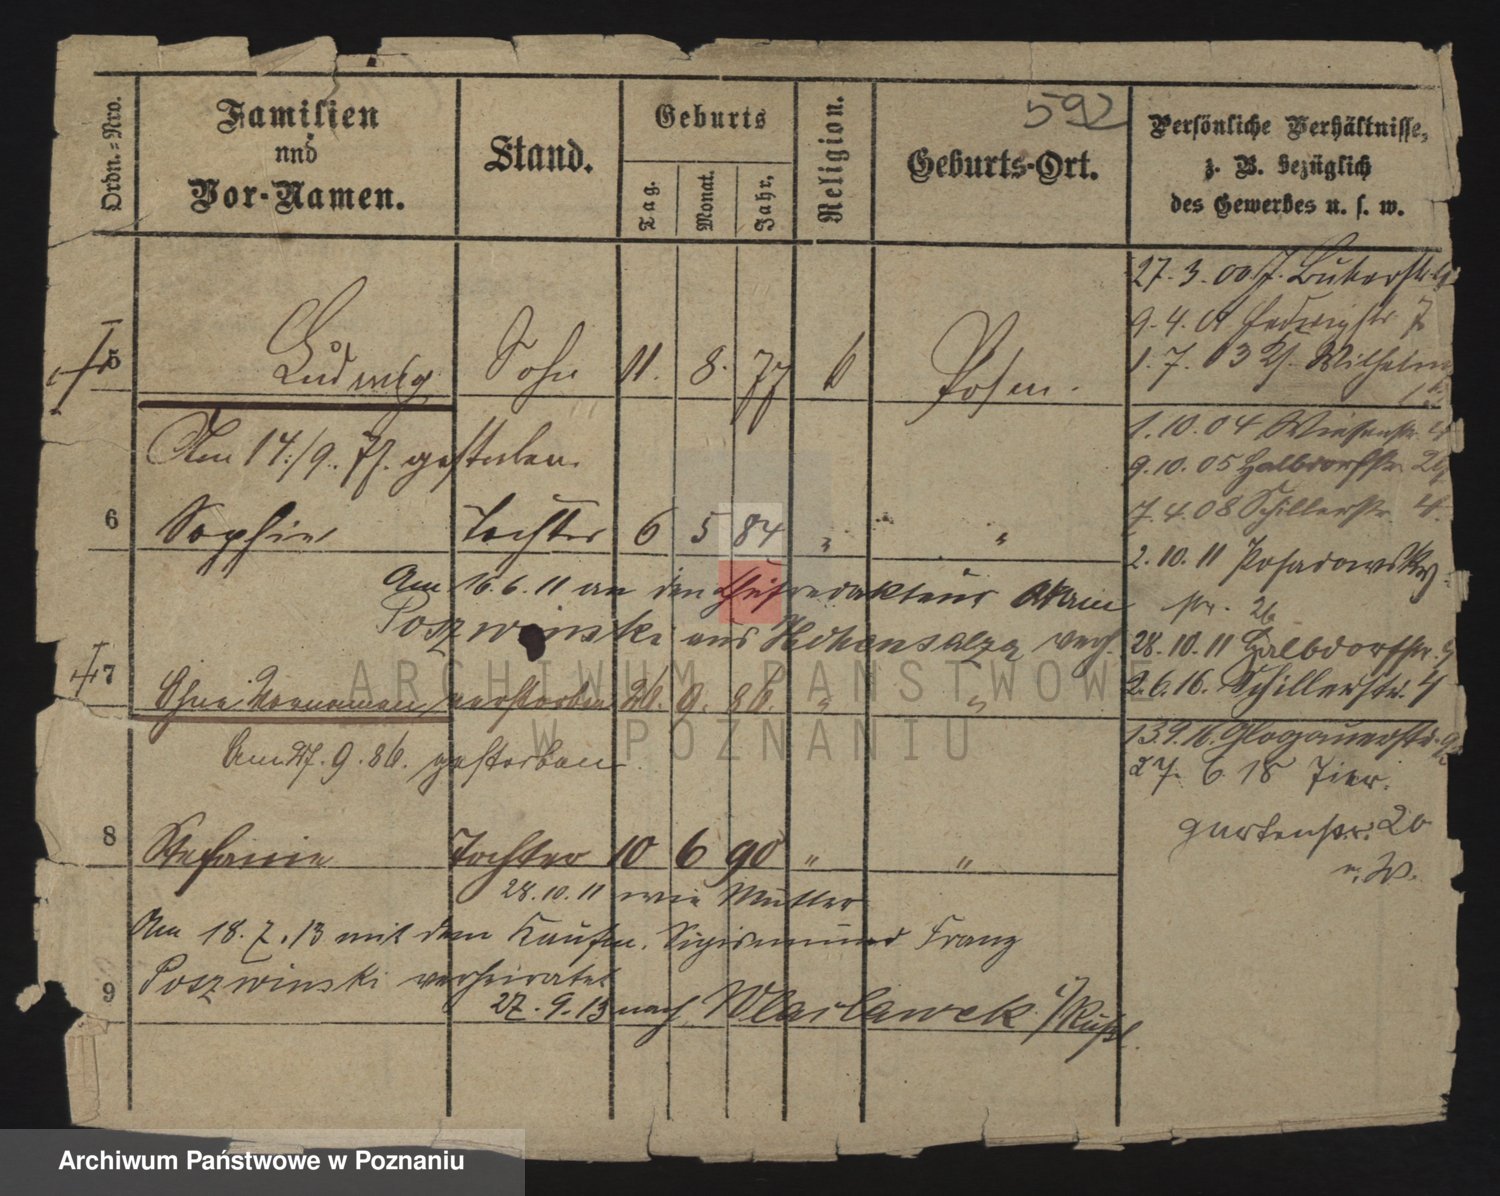 592
Ordn.-Nro.
Familien
und
Vor-Namen.
Stand.
Geburts
Tag.
Monat.
Jahr.
Religion.
Geburts-Ort.
Persönliche Verhältnisse,
z. B. bezüglich
des Gewerbes u. s. w.
5 Ludwig Sohn 11. 8. 77 Posen.
Am 14./9. 77. gestorben.
6 Sophie Tochter 6 5 84 " "
Am 16.6.11 an den Chefredakteur Adam
Poszwinski aus Hohensalza verh.
7 Ohne Vornamen verstorben 26. 9. 86. " "
Am 27. 9. 86. gestorben.
8 Stefanie Tochter 10 6 90 " "
28.10.11 wie Mutter
Am 18.7.13 mit dem Kaufm. Sigismund Franz
Poszwinski verheiratet
9
27.9.13 nach Wlaclawek i/Rußl.
27.3.00
9.4.01 Hedwigstr 7
1.7.03 Wilhelm
1.10.04 Wiesenstr.
9.10.05 Halbdorfstr.
7.4.08 Schillerstr. 4.
2.10.11 Posadowsky-
str. 26
28.10.11 Halbdorfstr.
2.6.16. Schillerstr. 4
13.9.16. Glogauerstr.
27. 6 18 Tier-
gartenstr. 20
ARCHIWUM PAŃSTWOWE
W POZNANIU
Archiwum Państwowe w Poznaniu